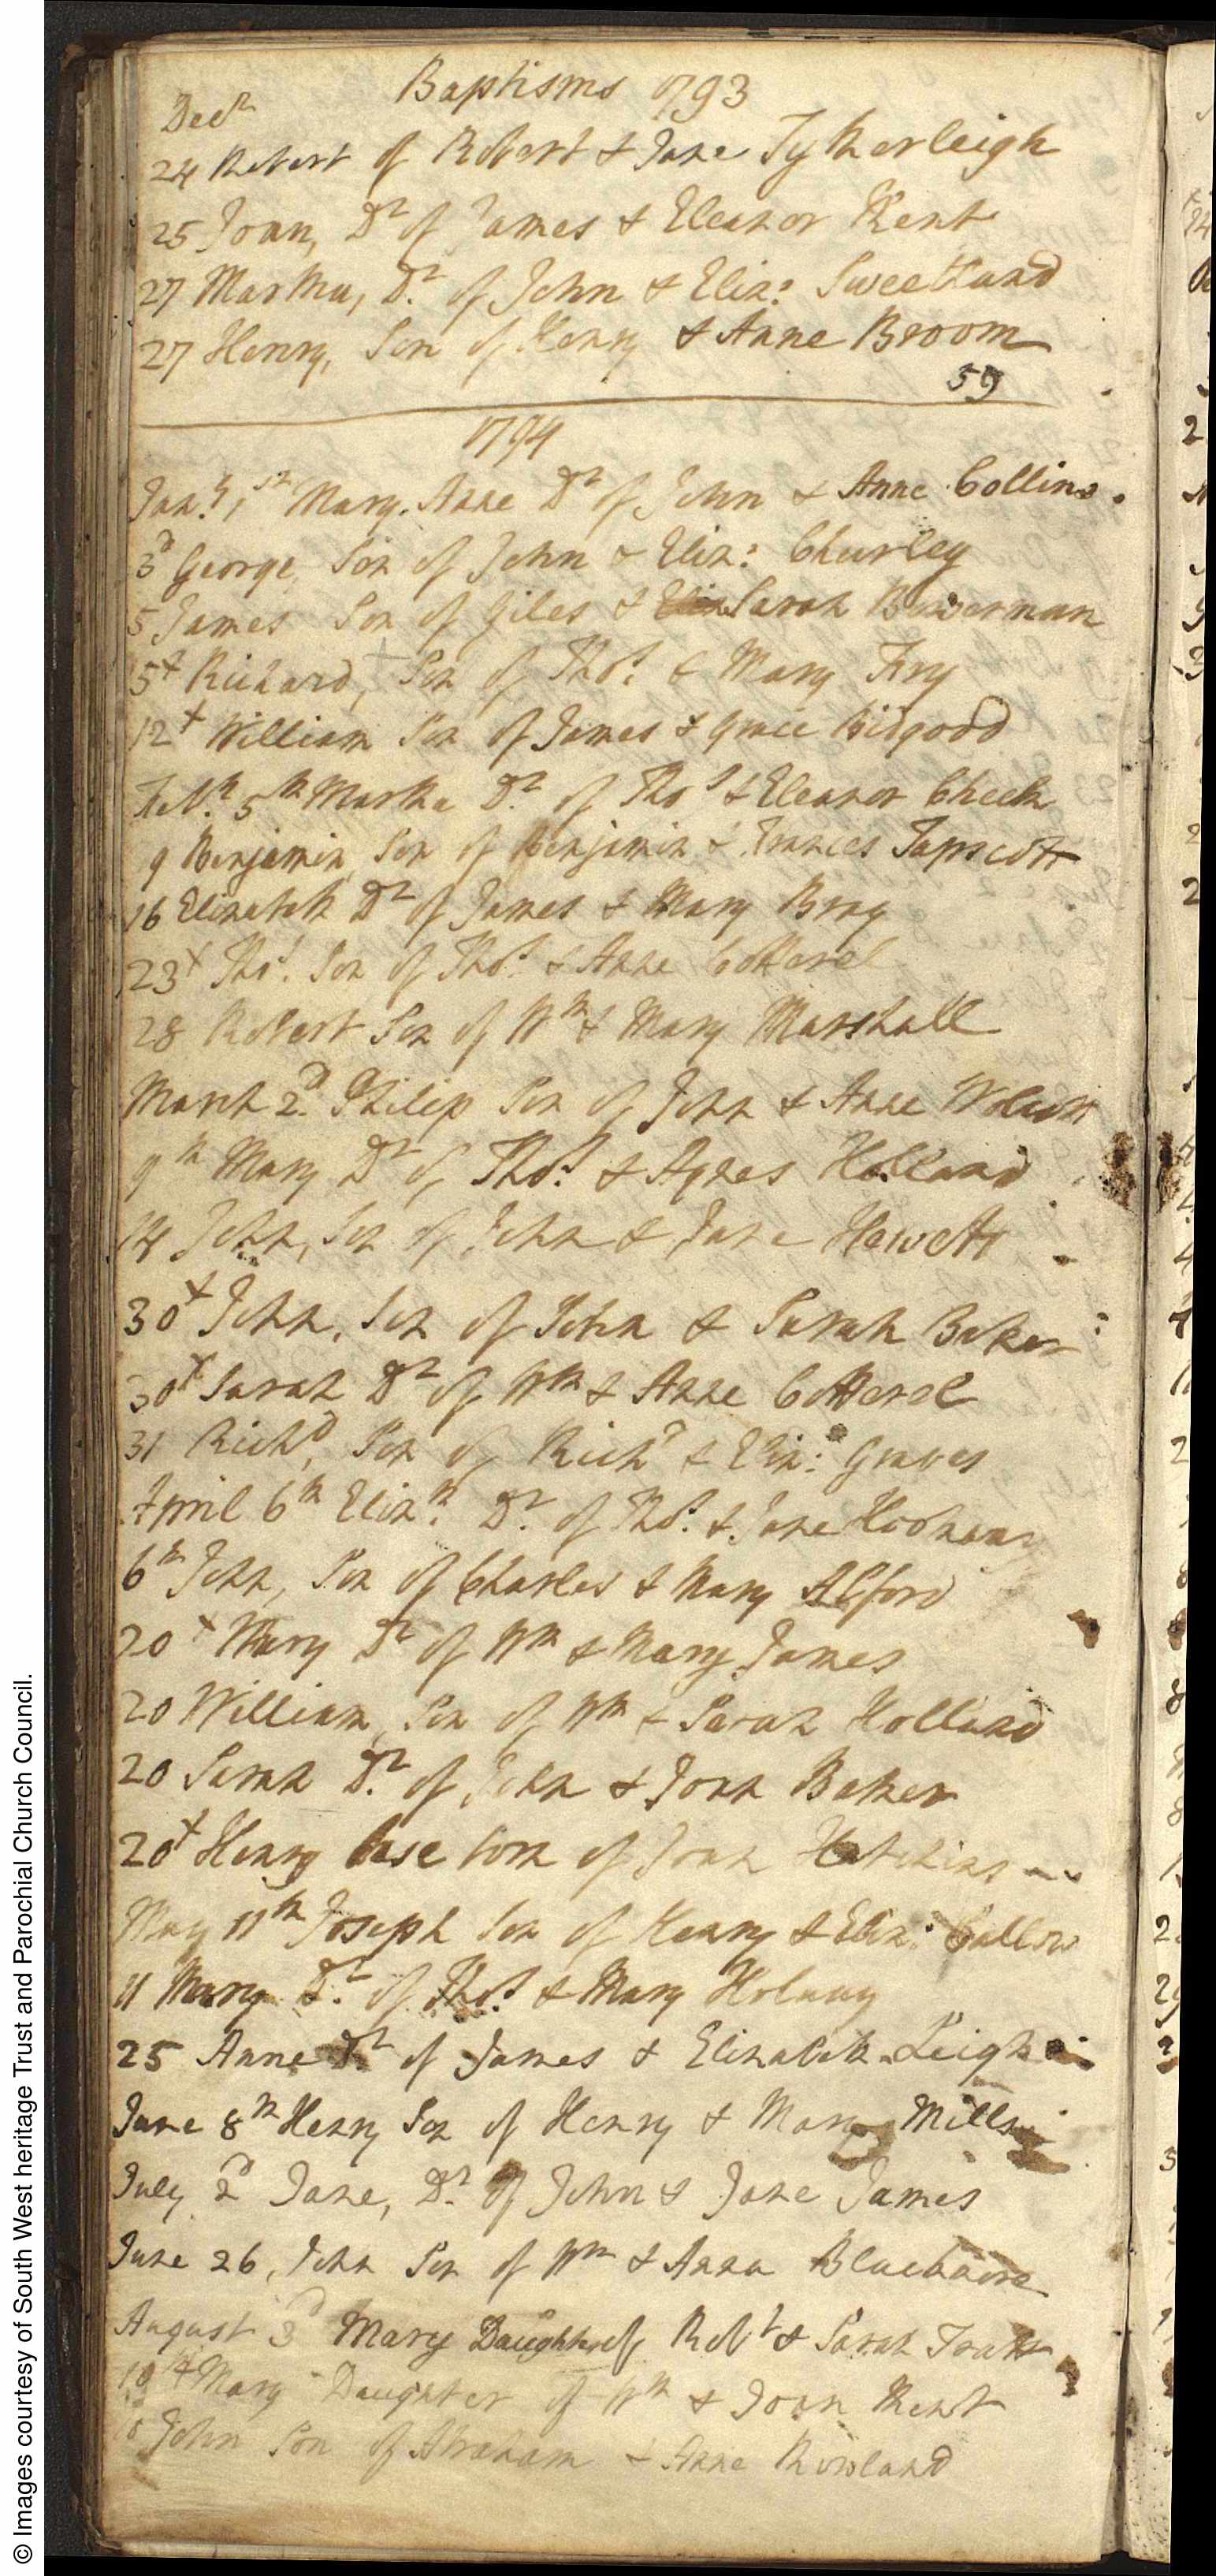 Baptisms 1793
Decr
24 Robert of Robert & Jane Tytherleigh
25 Joan, Dr of James & Eleanor Kent
27 Martha, Dr. of John & Eliz: Sweetland
27 Henry, Son of Henry & Anne Broom
59
1794
Jany. 1st Mary. Anne Dr of John & Anne Collins.
3d George, Son of John & Eliz: Churley
5 James Son of Giles & Sarah Bowerman
5+ Richard, Son of Thos. & Mary Fry
12+ William Son of James & Grace Bidgood
Febr. 5th Martha Dr. of Thos & Eleanor Cheek
9 Benjamin, Son of Benjamin & Frances Tapscott
16 Elizabeth Dr of James & Mary Bray
23+ Thos. Son of Thos. & Anne Cotterel
28 Robert Son of Wm & Mary Marshall
March 2d. Philip Son of John & Anne Wolcott
9th Mary Dr of Thos. & Agnes Holland
14 John, Son of John & Jane Hewett
30+ John, Son of John & Sarah Baker
30+ Sarah Dr of Wm & Anne Cotterel
31 Richd, Son of Richd & Eliz: Graves
April 6th Elizth. Dr. of Thos. & Jane
6th John, Son of Charles & Mary Alford
20+ Mary Dr of Wm & Mary James
20 William, Son of Wm & Sarah Holland
20 Sarah Dr. of John & Joan Baker
20+ Henry base born of Joan Hutchins
May 11th Joseph Son of Henry & Eliz:
11 Mary Dr. of Thos. & Mary Holway
25 Anne Dr of James & Elizabeth Leigh
June 8th Henry Son of Henry & Mary Mills
July 2d Jane, Dr. of John & Jane James
June 26, John Son of Wm & Anna Bluebacre
August 3d Mary Daughter of Robt & Sarah Trott
10th + Mary Daughter of Wm & Joan Kent
10 John Son of Abraham & Anne Rowland
© Images courtesy of South West heritage Trust and Parochial Church Council.